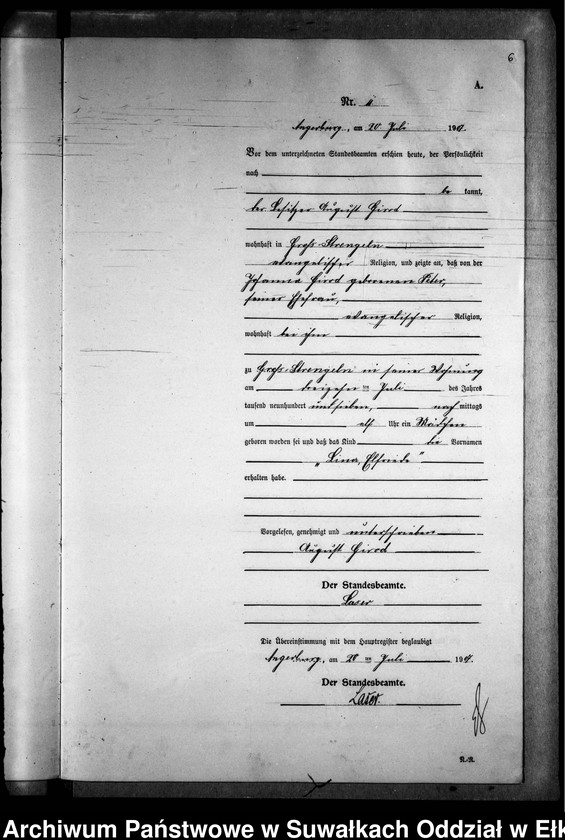 6
A.
Nr.
Angerburg, am 20 Juli 1907.
Vor dem unterzeichneten Standesbeamten erschien heute, der Persönlichkeit
nach
be kannt,
der Besitzer August
wohnhaft in Groß-Strengeln
evangelischer Religion, und zeigte an, daß von der
Johanna geborenen
seiner Ehefrau,
evangelischer Religion,
wohnhaft bei ihm
zu Groß-Strengeln in seiner Wohnung
am dreizehn ten Juli des Jahres
tausend neunhundert und sieben, nach mittags
um elf Uhr ein Mädchen
geboren worden sei und daß das Kind die Vornamen
„Lina, Elfriede"
erhalten habe.
Vorgelesen, genehmigt und unterschrieben
August
Der Standesbeamte.
Laser
Die Übereinstimmung mit dem Hauptregister beglaubigt
Angerburg, am 20 ten Juli 1907.
Der Standesbeamte.
Laser.
Archiwum Państwowe w Suwałkach Oddział w Ełk